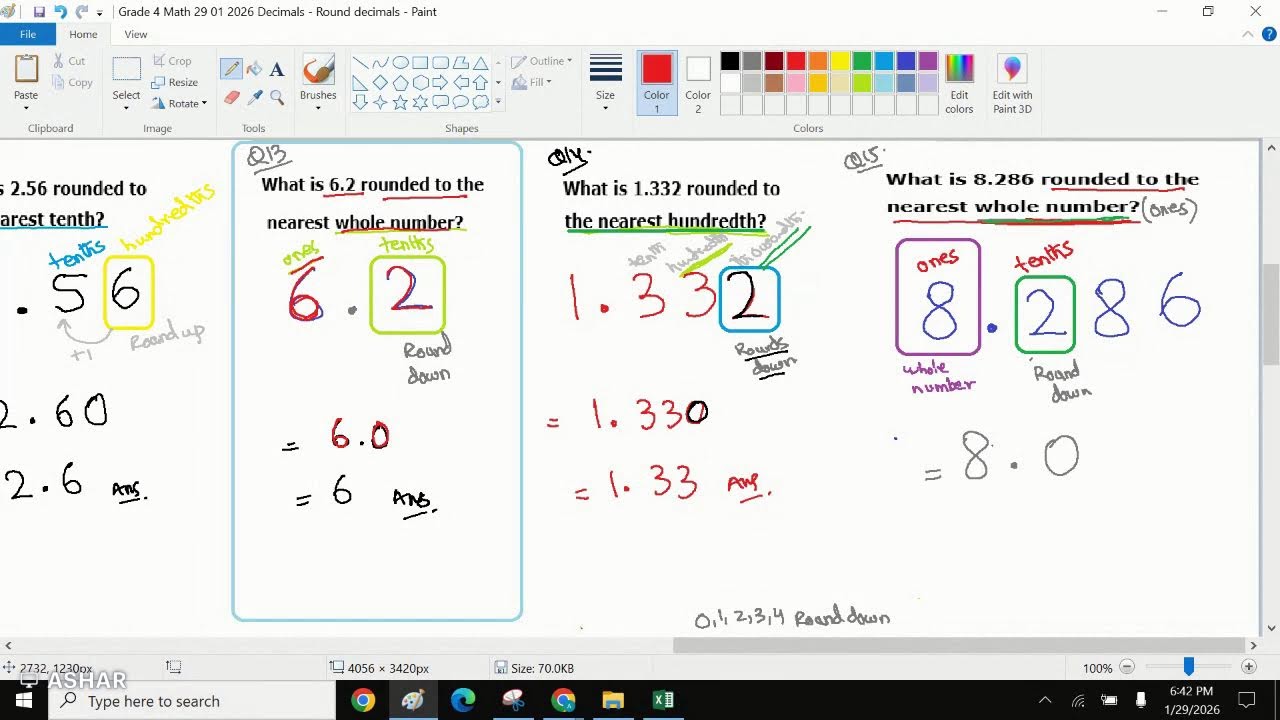 Grade 4 Math 29 01 2026 Decimals - Round decimals - Paint
File
Home
View
Paste
Cut
Copy
Clipboard
Select
Crop
Resize
Rotate
Image
Tools
Brushes
Outline
Fill
Shapes
Size
Color 1
Color 2
Edit colors
Edit with Paint 3D
Colors
s 2.56 rounded to
arest tenth?
tenths hundredths
. 5 6
+1 Round up
2.60
2.6 Ans.
Q13
What is 6.2 rounded to the
nearest whole number?
ones tenths
6 . 2
Round
down
= 6.0
= 6 Ans.
Q14.
What is 1.332 rounded to
the nearest hundredth?
tenth hundredth thousandths.
1.332
Rounds
down
= 1.330
= 1.33 Ans.
Q15.
What is 8.286 rounded to the
nearest whole number? (ones)
ones tenths
8 . 2 8 6
whole
number
Round
down
= 8.0
0,1,2,3,4 Round down
2732, 1230px
4056 × 3420px
Size: 70.0KB
100%
ASHAR
Type here to search
6:42 PM
1/29/2026